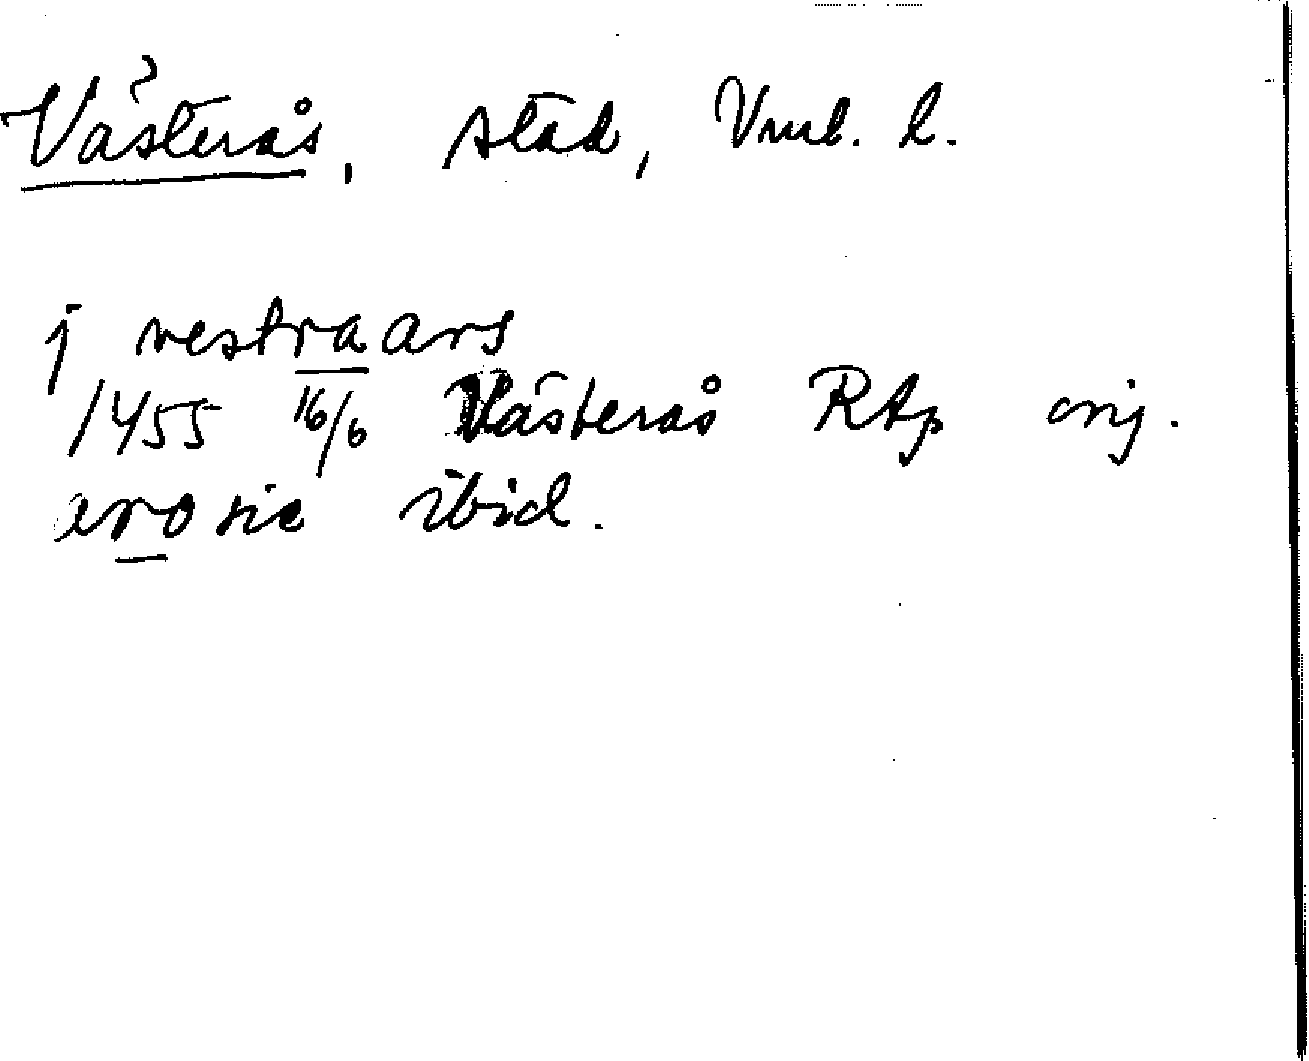 Västerås, stad, Vml. l.
j vestraars
1455 16/6 Västerås RAp orig.
arosie ibid.